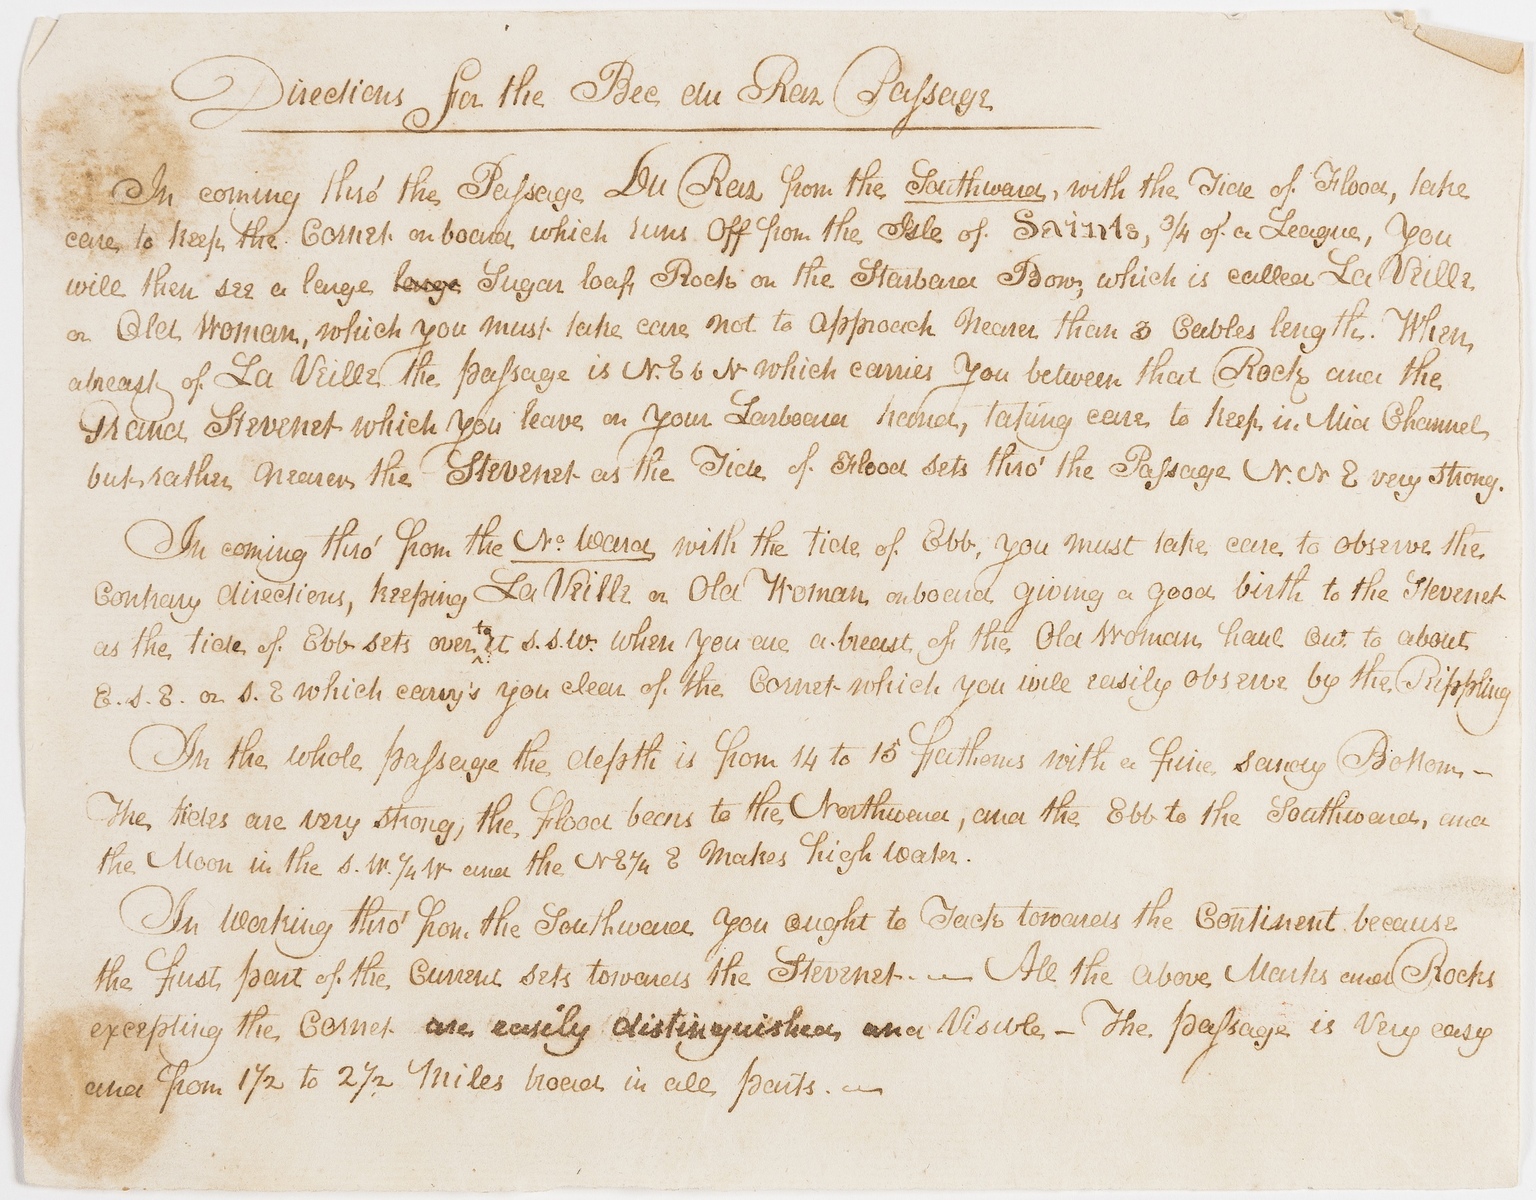 Directions for the Bec du Raz Passage
In coming thro' the Passage Du Raz from the Southward, with the Tide of Flood, take
care to keep the Cornet onboard which runs Off from the Isle of Saints, 3/4 of a League, You
will then see a large large Sugar loaf Rock on the Starboard Bow, which is called La Veille
or Old Woman, which you must take care not to approach nearer than 3 Cables length. When
abreast of La Veille the passage is N.E b N which carries You between that Rock and the
Grand Stevenet which you leave on your Larboard hand, taking care to keep in Mid Channel
but rather nearer the Stevenet as the Tide of Flood sets thro' the Passage N.N E very strong.
In coming thro' from the No. Ward with the tide of Ebb, you must take care to observe the
Contrary directions, keeping La Veille or Old Woman onboard giving a good birth to the Stevenet
as the tide of Ebb sets over to it S.S.W. when you are a breast of the Old Woman haul out to about
E.S.E. or S.E which carry's you clear of the Cornet which you will easily observe by the Rippling
In the whole passage the depth is from 14 to 15 fathoms with a fine sandy Bottom –
The tides are very strong, the flood bears to the Northward, and the Ebb to the Southward, and
the Moon in the S.W. 1/4 W and the N E 1/4 E makes high water.
In working thro' from the Southward you ought to Tack towards the Continent because
the first part of the Current sets towards the Stevenet. — All the above Marks and Rocks
excepting the Cornet are easily distinguished and Visible – The passage is very easy
and from 1 1/2 to 2 1/2 Miles broad in all parts. —